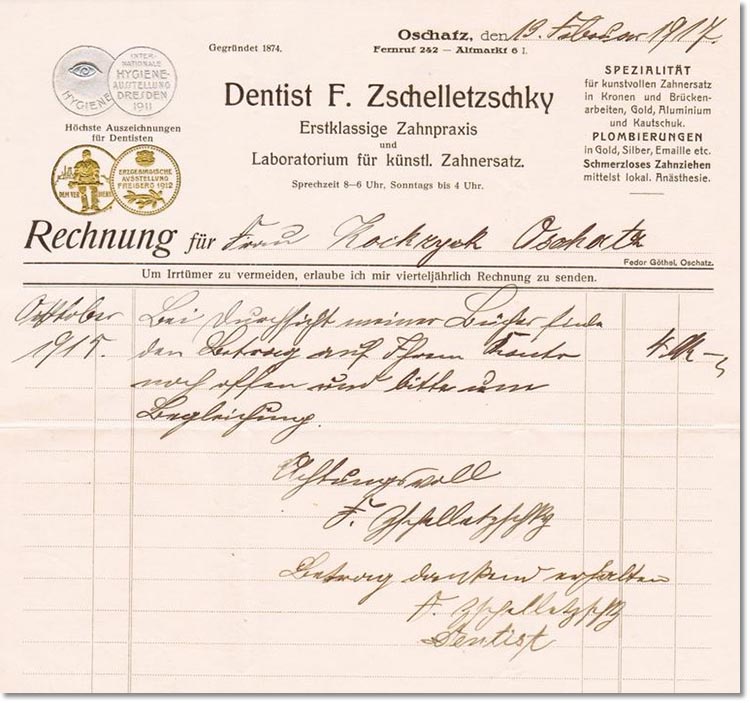 Gegründet 1874.
Oschatz, den 19. Februar 1917.
Fernruf 242 — Altmarkt 6 I.
HYGIENE
INTER-
NATIONALE
HYGIENE-
AUSSTELLUNG
DRESDEN
1911
Höchste Auszeichnungen
für Dentisten
DEM VER DIENST
ERZGEBIRGISCHE
AUSSTELLUNG
FREIBERG 1912
Dentist F. Zschelletzschky
Erstklassige Zahnpraxis
und
Laboratorium für künstl. Zahnersatz.
Sprechzeit 8—6 Uhr, Sonntags bis 4 Uhr.
SPEZIALITÄT
für kunstvollen Zahnersatz
in Kronen und Brücken-
arbeiten, Gold, Aluminium
und Kautschuk.
PLOMBIERUNGEN
in Gold, Silber, Emaille etc.
Schmerzloses Zahnziehen
mittelst lokal. Anästhesie.
Rechnung für Frau Oschatz
Fedor Göthel, Oschatz.
Um Irrtümer zu vermeiden, erlaube ich mir vierteljährlich Rechnung zu senden.
Oktober
1915.
Bei Durchsicht meiner Bücher finde
den Betrag auf Ihrem Konto 4 M —
noch offen und bitte um
Begleichung.
Achtungsvoll
F. Zschelletzschky
Betrag dankend erhalten
F. Zschelletzschky
Dentist